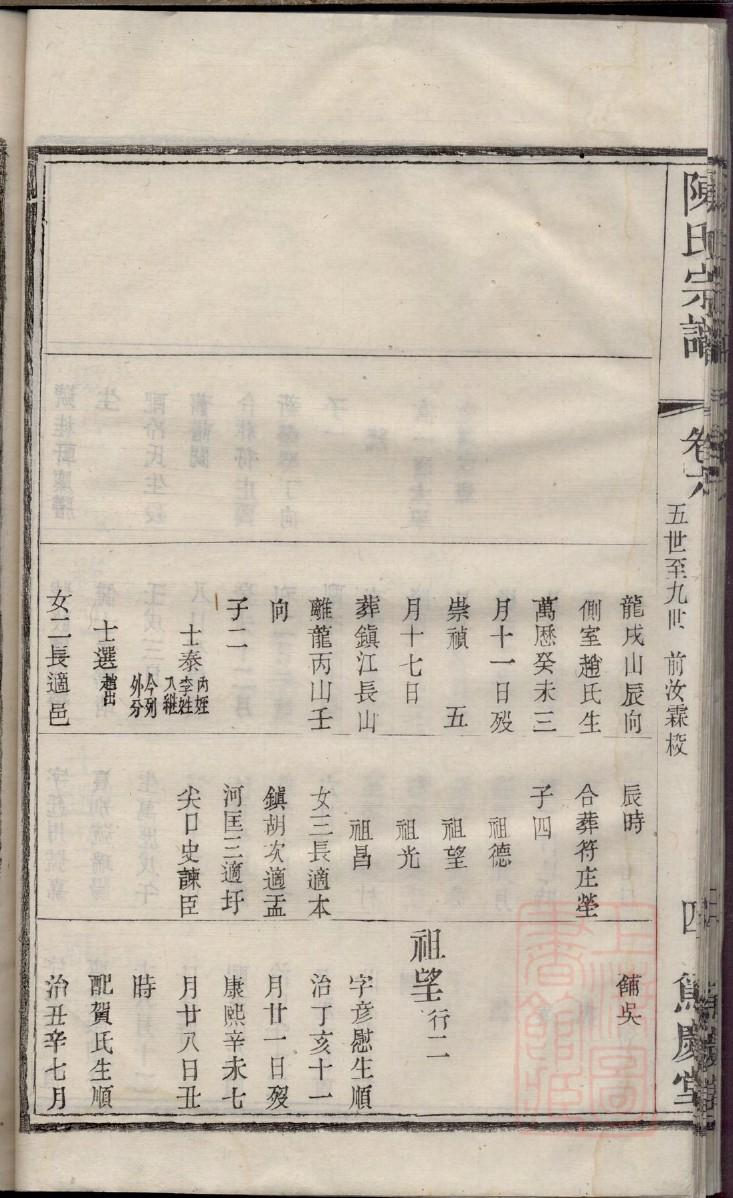 陳氏宗譜
卷六
五世至九世 前汝霖校
四
龍戌山辰向
側室趙氏生
萬厯癸未三
月十一日歿
崇禎 五
月十七日
葬鎮江長山
離龍丙山壬
向
子二
士泰 丙姪李姓入繼今列外分
士選 趙出
女二長適邑
辰時
合葬符庄塋
子四
祖德
祖望
祖光
祖昌
女三長適本
鎮胡次適孟
河匡三適圩
尖口史諫臣
舖吳
祖望 行二
字彦慰生順
治丁亥十一
月廿一日歿
康熙辛未七
月廿八日丑
時
配賀氏生順
治丑辛七月